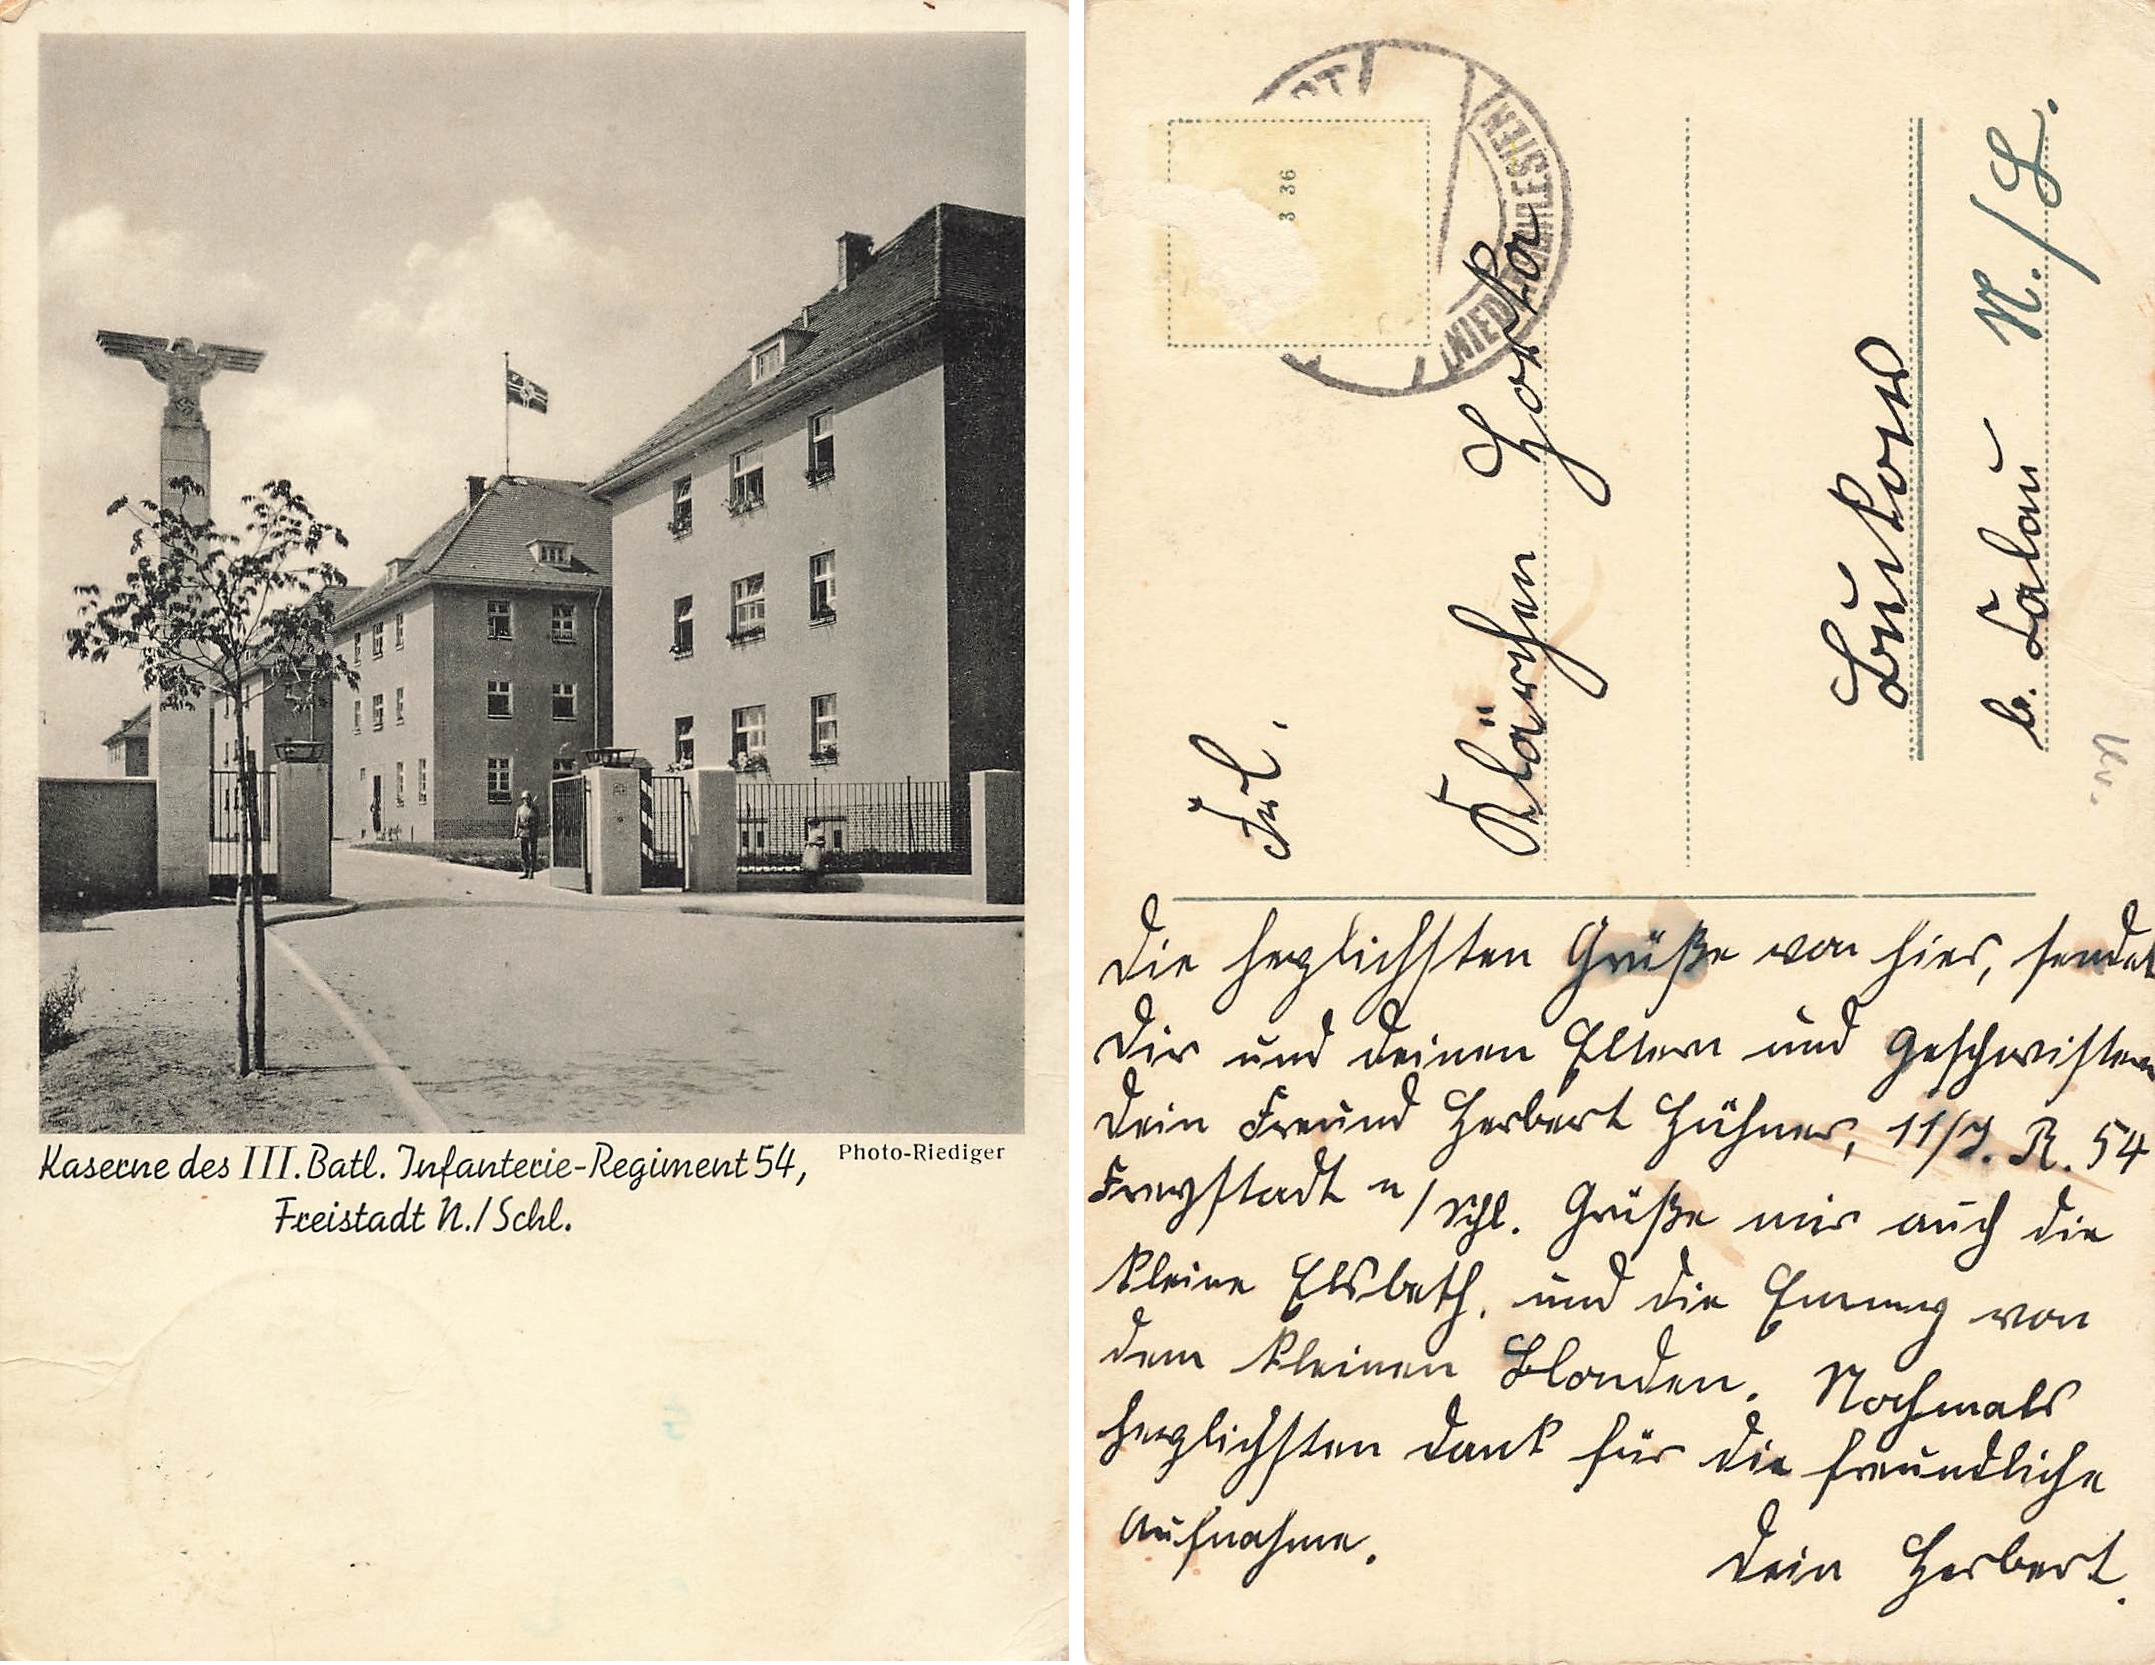 Kaserne des III. Batl. Infanterie-Regiment 54,
Freistadt N./Schl.
Photo-Riediger
3 36
NIEDERSCHLESIEN
Frl.
Klärchen Horka
Buckow
b. Calau N./L.
Die herzlichsten Grüße von hier, sendet
Dir und deinen Eltern und Geschwistern
Dein Freund Herbert Hühner, 11/J. R. 54
Freystadt n/Schl. Grüße mir auch die
kleine Elsbeth, und die Emmy von
dem kleinen Blonden. Nochmals
herzlichsten Dank für die freundliche
Aufnahme.
Dein Herbert.